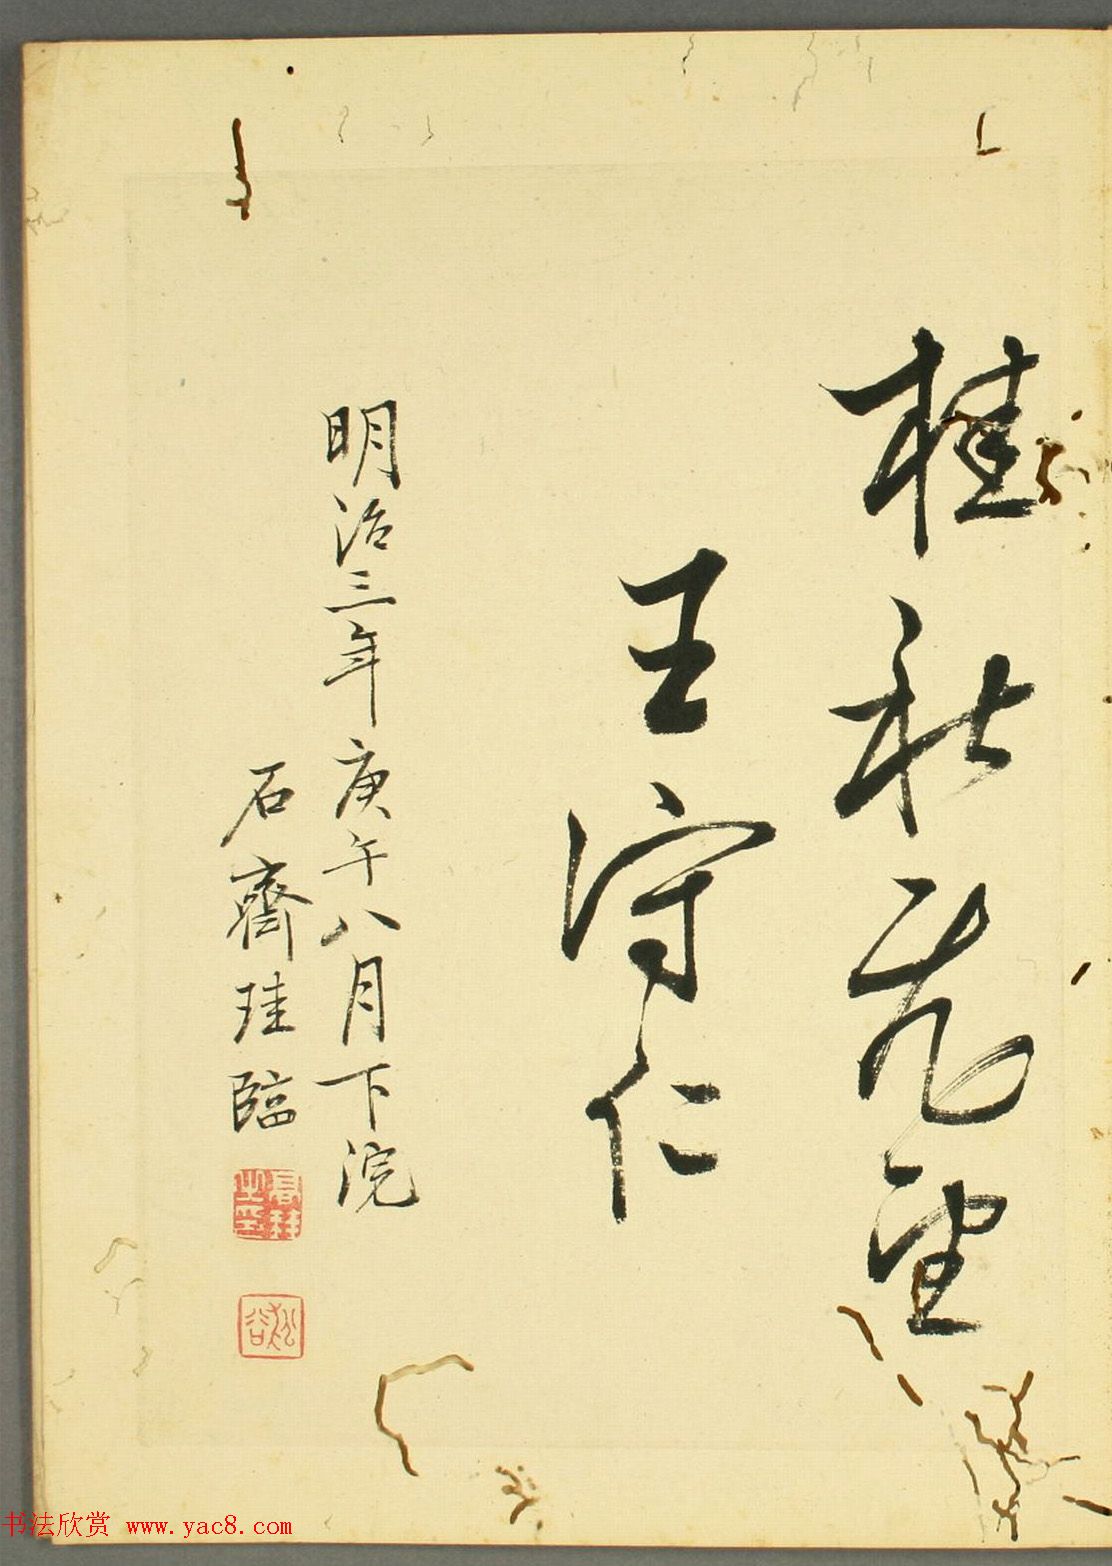 桂秋既望
王守仁
明治三年庚午八月下浣
石齋珪臨
书法欣赏 www.yac8.com